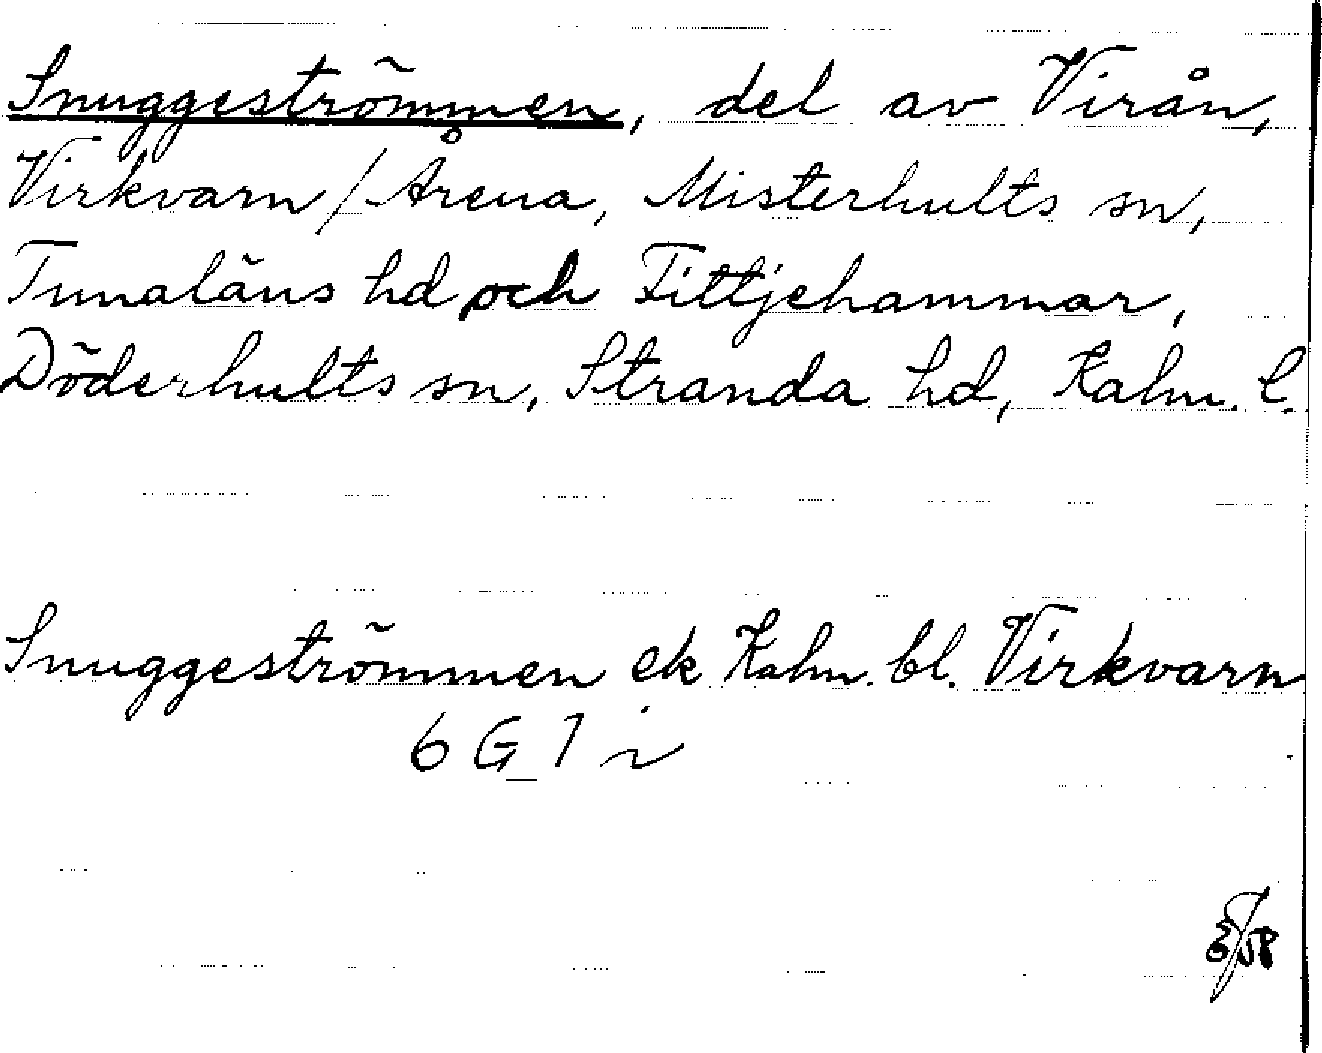 Snuggeströmmen, del av Virån,
Virkvarn/Årena, Misterhults sn,
Tunaläns hd och Fittjehammar,
Döderhults sn, Stranda hd, Kalm. l.
Snuggeströmmen ek Kalm. bl. Virkvarn
6 G 7 i